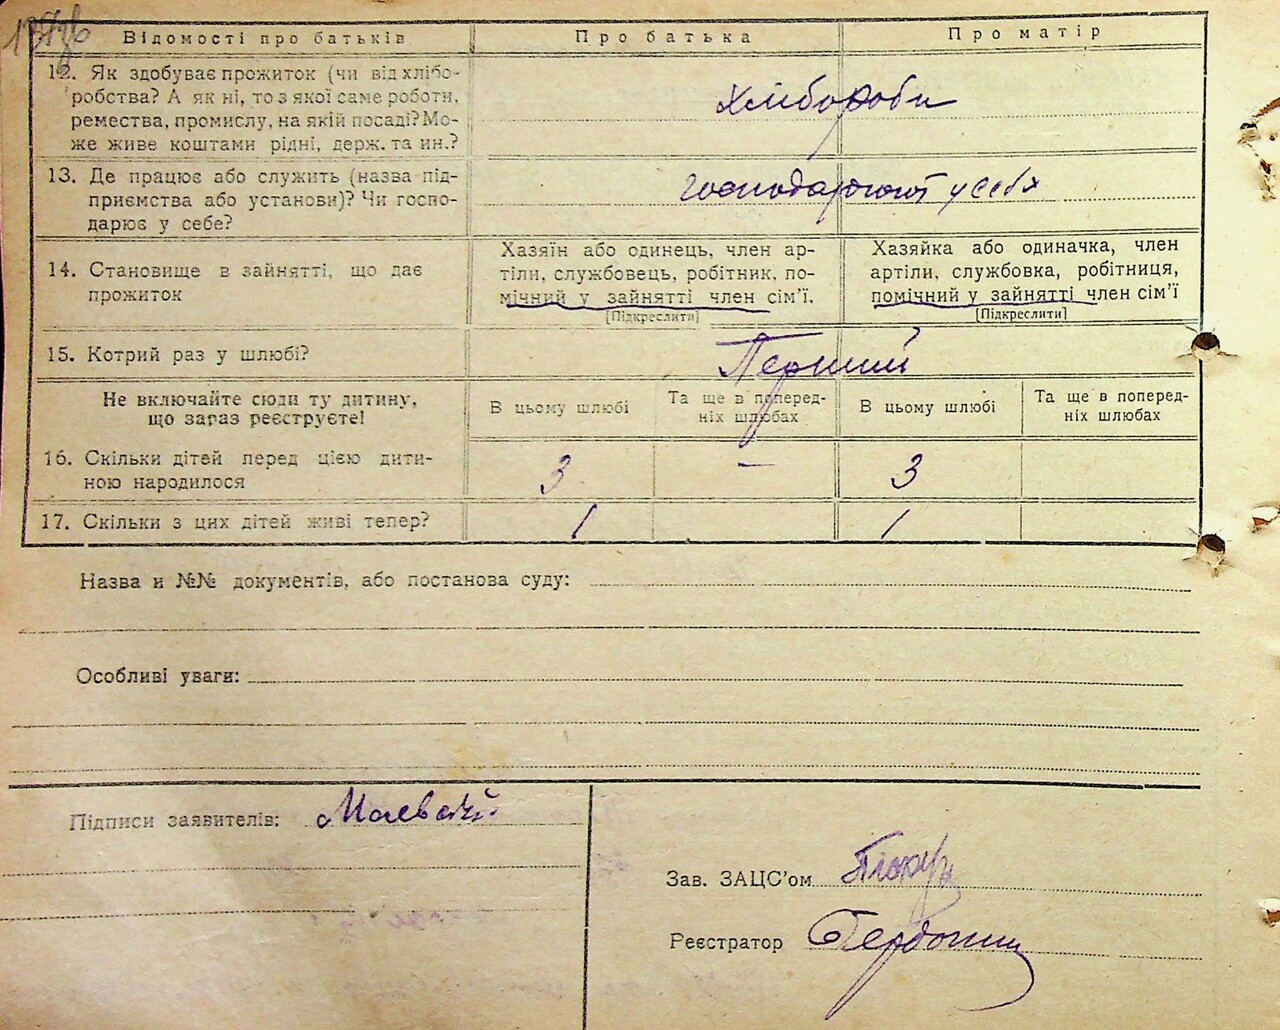 Відомості про батьків
Про батька
Про матір
12. Як здобуває прожиток (чи від хлібо-
робства? А як ні, то з якої саме роботи,
ремества, промислу, на якій посаді? Мо-
же живе коштами рідні, держ. та ин.?
Хлібороби
13. Де працює або служить (назва під-
приємства або установи)? Чи госпо-
дарює у себе?
у себя
14. Становище в зайнятті, що дає
прожиток
Хазяїн або одинець, член ар-
тіли, службовець, робітник, по-
мічний у зайнятті член сім’ї.
[Підкреслити]
Хазяйка або одиначка, член
артіли, службовка, робітниця,
помічний у зайнятті член сім’ї
[Підкреслити]
15. Котрий раз у шлюбі?
Перший
Не включайте сюди ту дитину,
що зараз реєструєте!
В цьому шлюбі
Та ще в поперед-
ніх шлюбах
В цьому шлюбі
Та ще в поперед-
ніх шлюбах
16. Скільки дітей перед цією дити-
ною народилося
3
—
3
17. Скільки з цих дітей живі тепер?
1
1
Назва и №№ документів, або постанова суду:
Особливі уваги:
Підписи заявителів:
Зав. ЗАЦС’ом
Реєстратор